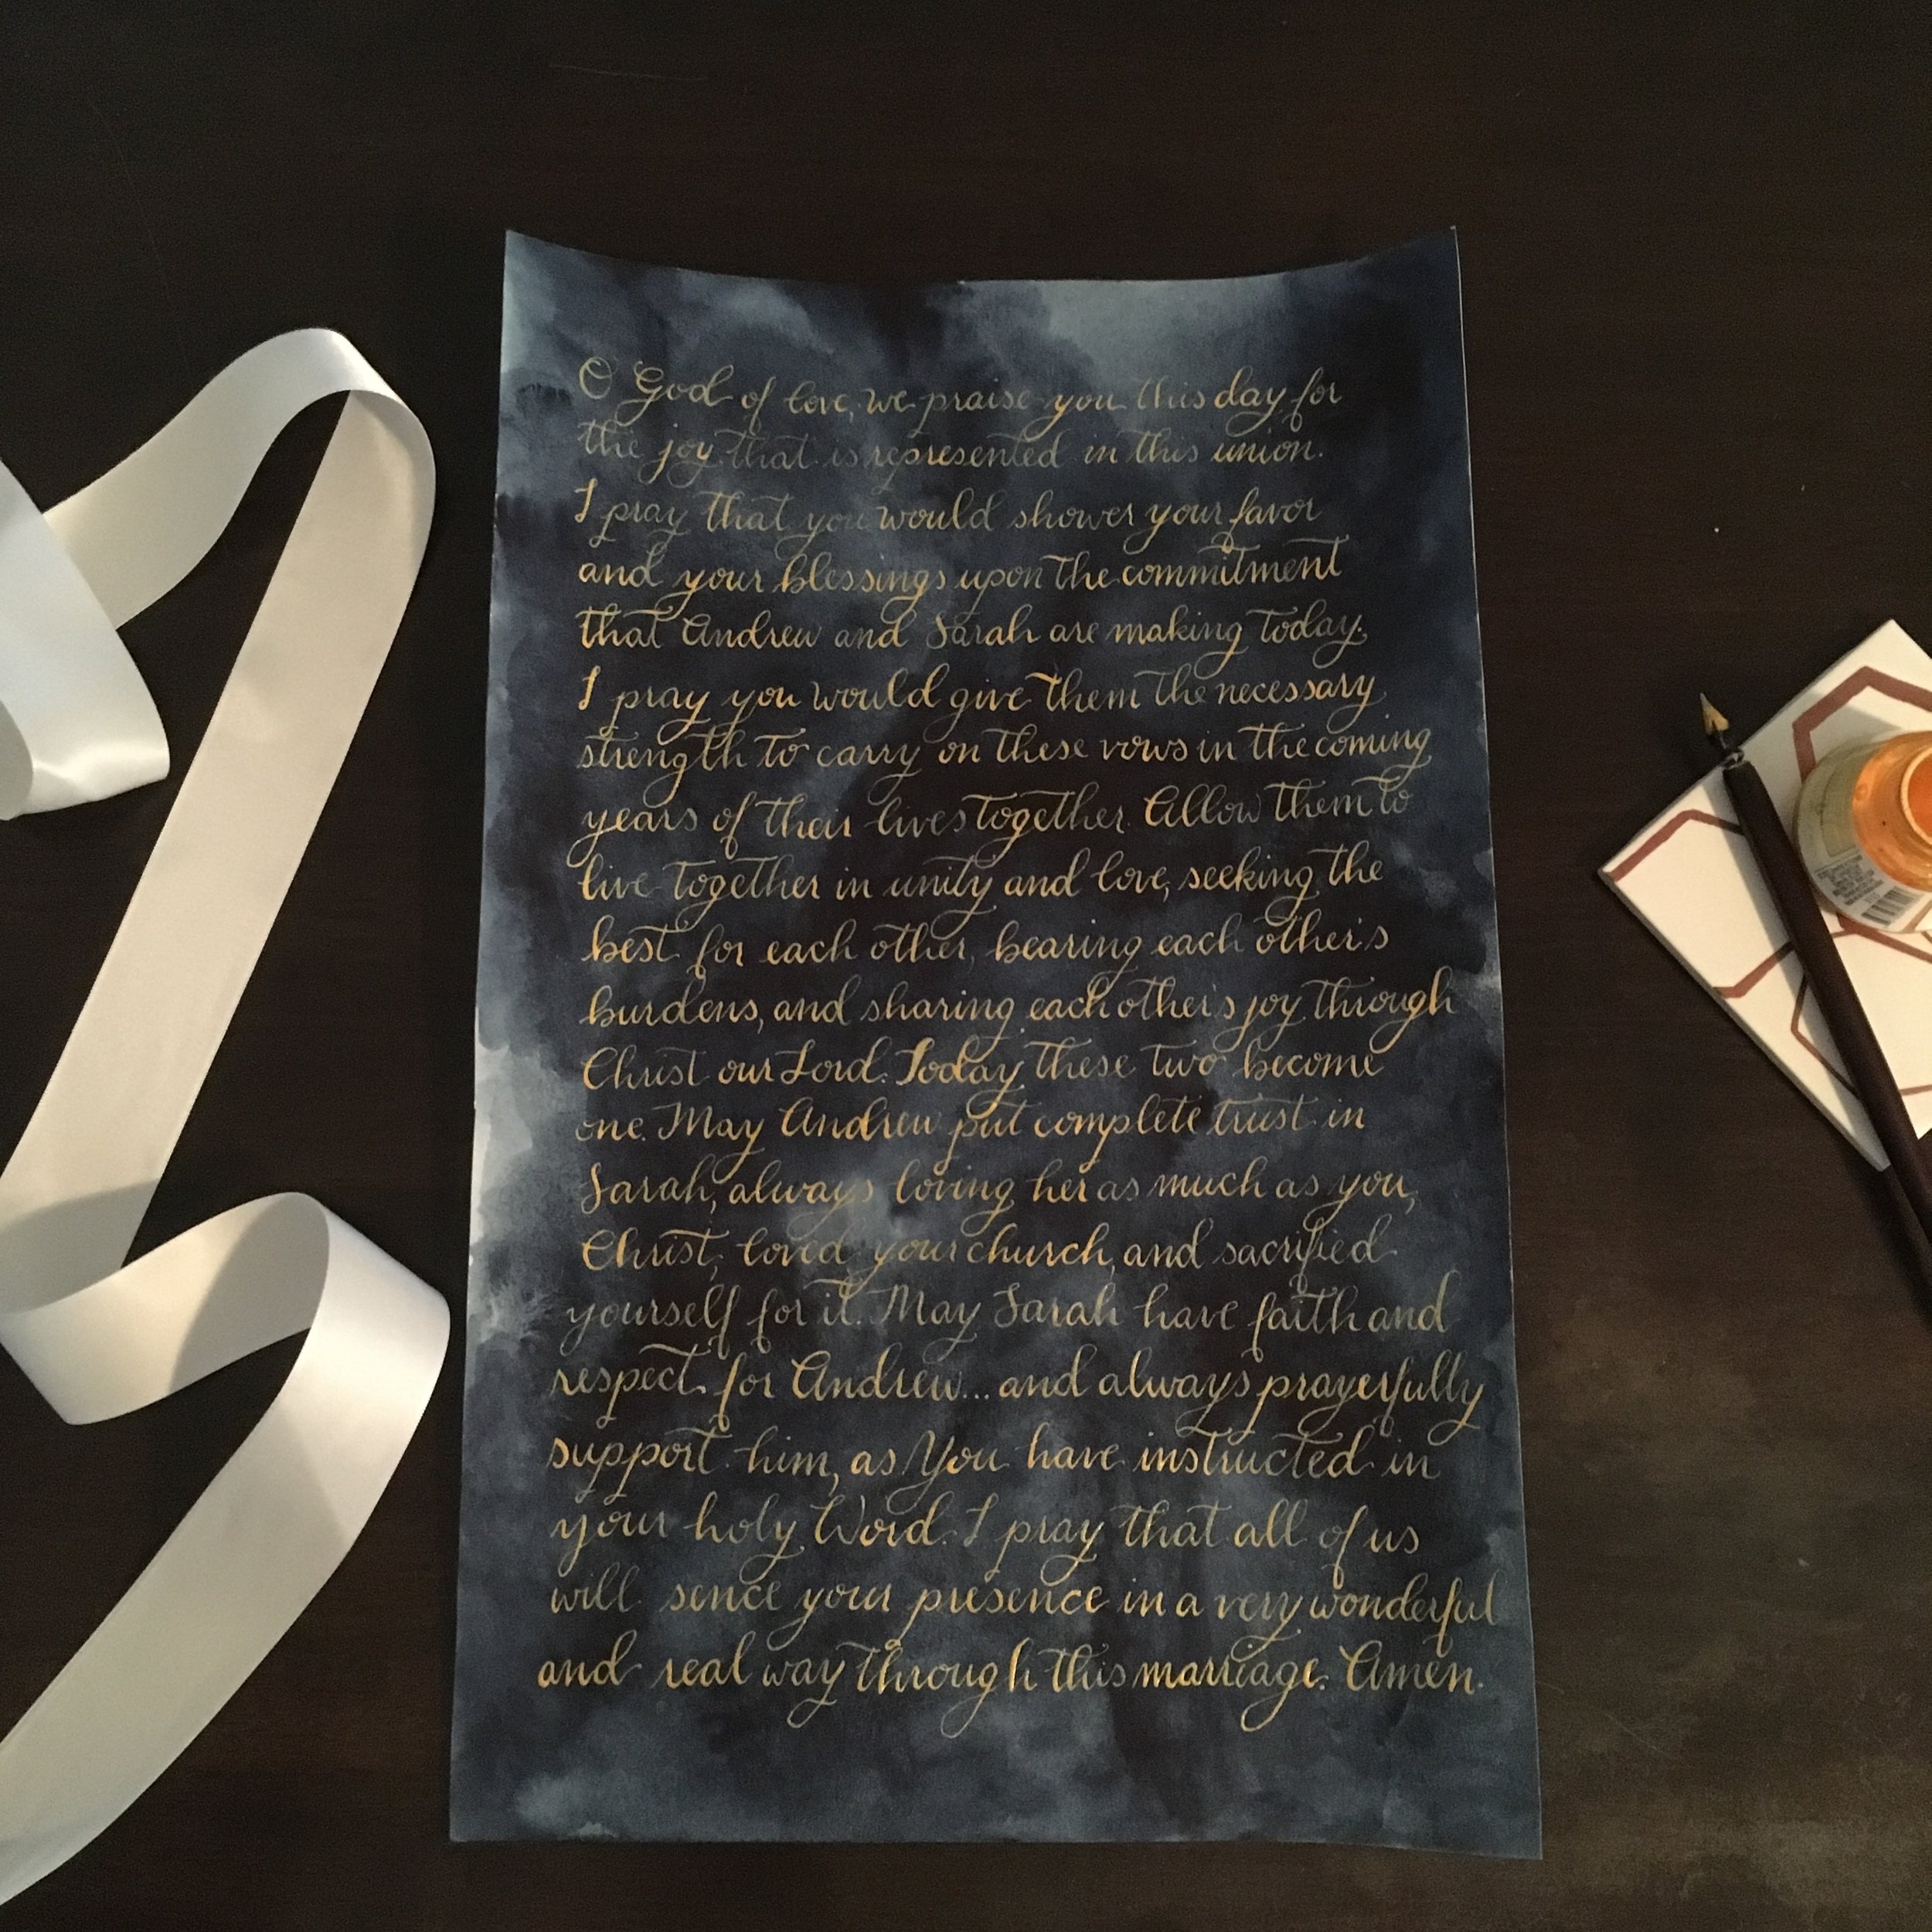 O God of love, we praise you this day for
the joy that is represented in this union.
I pray that you would shower your favor
and your blessings upon the commitment
that Andrew and Sarah are making today.
I pray you would give them the necessary
strength to carry on these vows in the coming
years of their lives together. Allow them to
live together in unity and love, seeking the
best for each other, bearing each other's
burdens, and sharing each other's joy through
Christ our Lord. Today these two become
one. May Andrew put complete trust in
Sarah, always loving her as much as you,
Christ, loved your church, and sacrified
yourself for it. May Sarah have faith and
respect for Andrew... and always prayerfully
support him, as You have instructed in
your holy Word. I pray that all of us
will sence your presence in a very wonderful
and real way through this marriage. Amen.